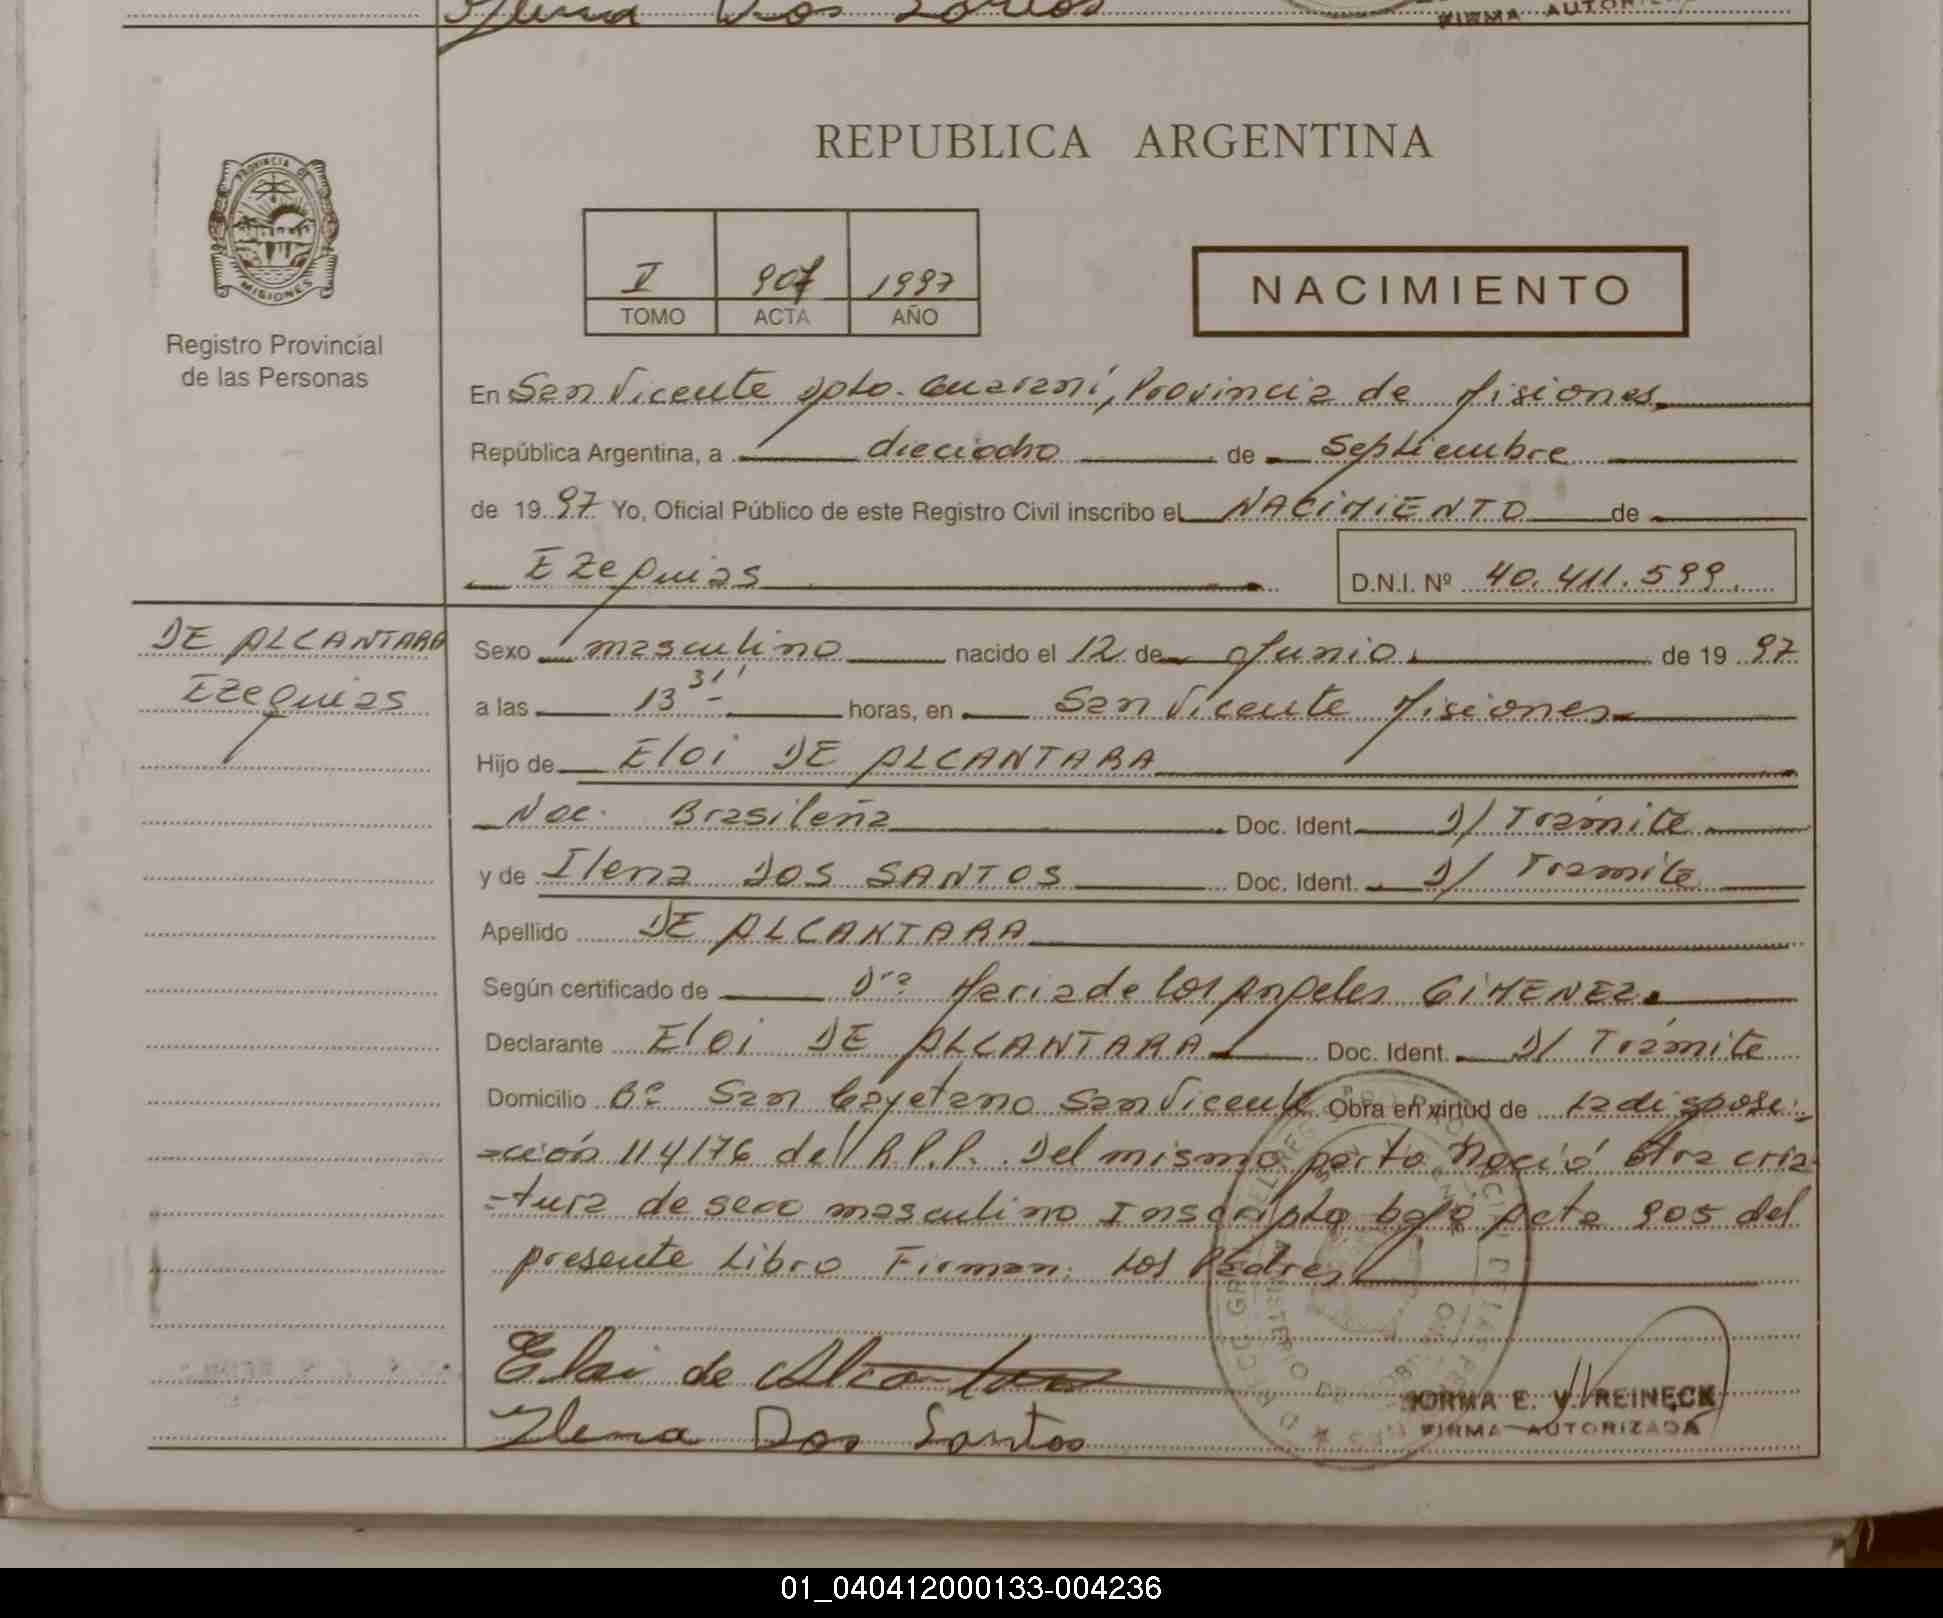 Ilena Dos Santos
FIRMA AUTORIZ
REPUBLICA ARGENTINA
PROVINCIA DE
MISIONES
V 907 1997
TOMO ACTA AÑO
NACIMIENTO
Registro Provincial
de las Personas
En San Vicente Dpto. Guaraní, Provincia de Misiones
República Argentina, a dieciocho de Septiembre
de 1997 Yo, Oficial Público de este Registro Civil inscribo el NACIMIENTO de
Ezequias D.N.I. Nº 40.411.599.
DE ALCANTARA
Ezequias
Sexo masculino nacido el 12 de Junio de 1997
a las 13 31' horas, en San Vicente Misiones
Hijo de Eloi DE ALCANTARA
Nac. Brasileña Doc. Ident. D/ Trámite
y de Ilena DOS SANTOS Doc. Ident. D/ Tramite
Apellido DE ALCANTARA
Según certificado de Dra Maria de los Angeles GIMENEZ.
Declarante Eloi DE ALCANTARA Doc. Ident. D/ Trámite
Domicilio Bº San Cayetano San Vicente Obra en virtud de la disposi-
-ción 114/76 del R.P.P. Del mismo parto Nació otra cria-
-tura de sexo masculino Inscripto bajo Acta 905 del
presente Libro Firman: Los Padres
Eloi de Alcantara
Ilena Dos Santos
NORMA E. V. REINECK
FIRMA AUTORIZADA
01_040412000133-004236